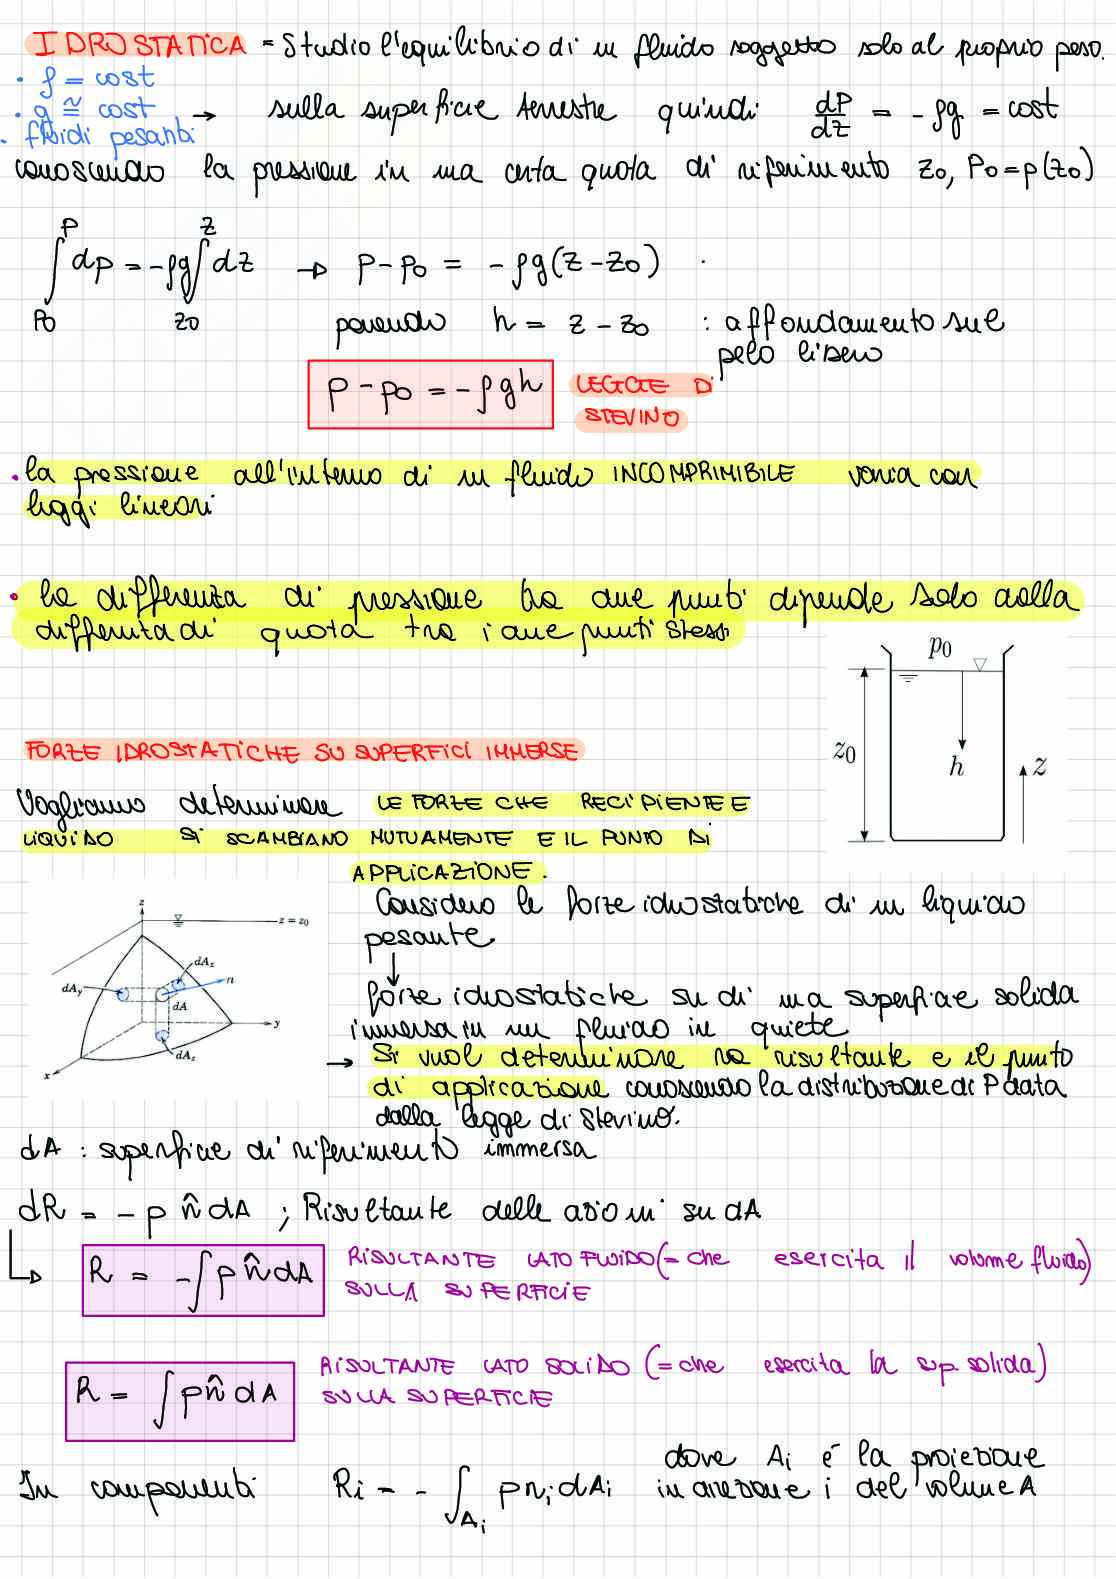 IDROSTATICA = Studio l'equilibrio di un fluido soggetto solo al proprio peso.
• ρ = cost
• g ≅ cost → sulla superficie terrestre quindi dP/dz = - ρg = cost
• fluidi pesanti
conoscendo la pressione in una certa quota di riferimento z0, P0=p(z0)
∫_{P0}^{P} dp = -ρg ∫_{z0}^{z} dz → p-p0 = -ρg(z-z0)
ponendo h = z-z0 : affondamento sul
pelo libero
p-p0 = -ρgh LEGGE DI
STEVINO
• la pressione all'interno di un fluido INCOMPRIMIBILE varia con
leggi lineari
• la differenza di pressione tra due punti dipende solo dalla
differenza di quota tra i due punti stessi
p0
z0
h
z
FORZE IDROSTATICHE SU SUPERFICI IMMERSE
Vogliamo determinare LE FORZE CHE RECIPIENTE E
LIQUIDO SI SCAMBIANO MUTUAMENTE E IL PUNTO DI
APPLICAZIONE.
z
z = z0
dAx
n
dAy
dA
y
dAz
x
Considero le forze idrostatiche di un liquido
pesante
↓
forze idrostatiche su di una superficie solida
immersa in un fluido in quiete
→ Si vuol determinare la risultante e il punto
di applicazione conoscendo la distribuzione di P data
dalla legge di Stevino.
dA : superficie di riferimento immersa
dR = - p n̂ dA ; Risultante delle azioni su dA
R = -∫ p n̂ dA RISULTANTE LATO FLUIDO (= che esercita il volume fluido)
SULLA SUPERFICIE
R = ∫ p n̂ dA RISULTANTE LATO SOLIDO (= che esercita la sup. solida)
SULLA SUPERFICIE
dove Ai é la proiezione
In componenti Ri = - ∫_{Ai} p ni dAi in direzione i del volume A